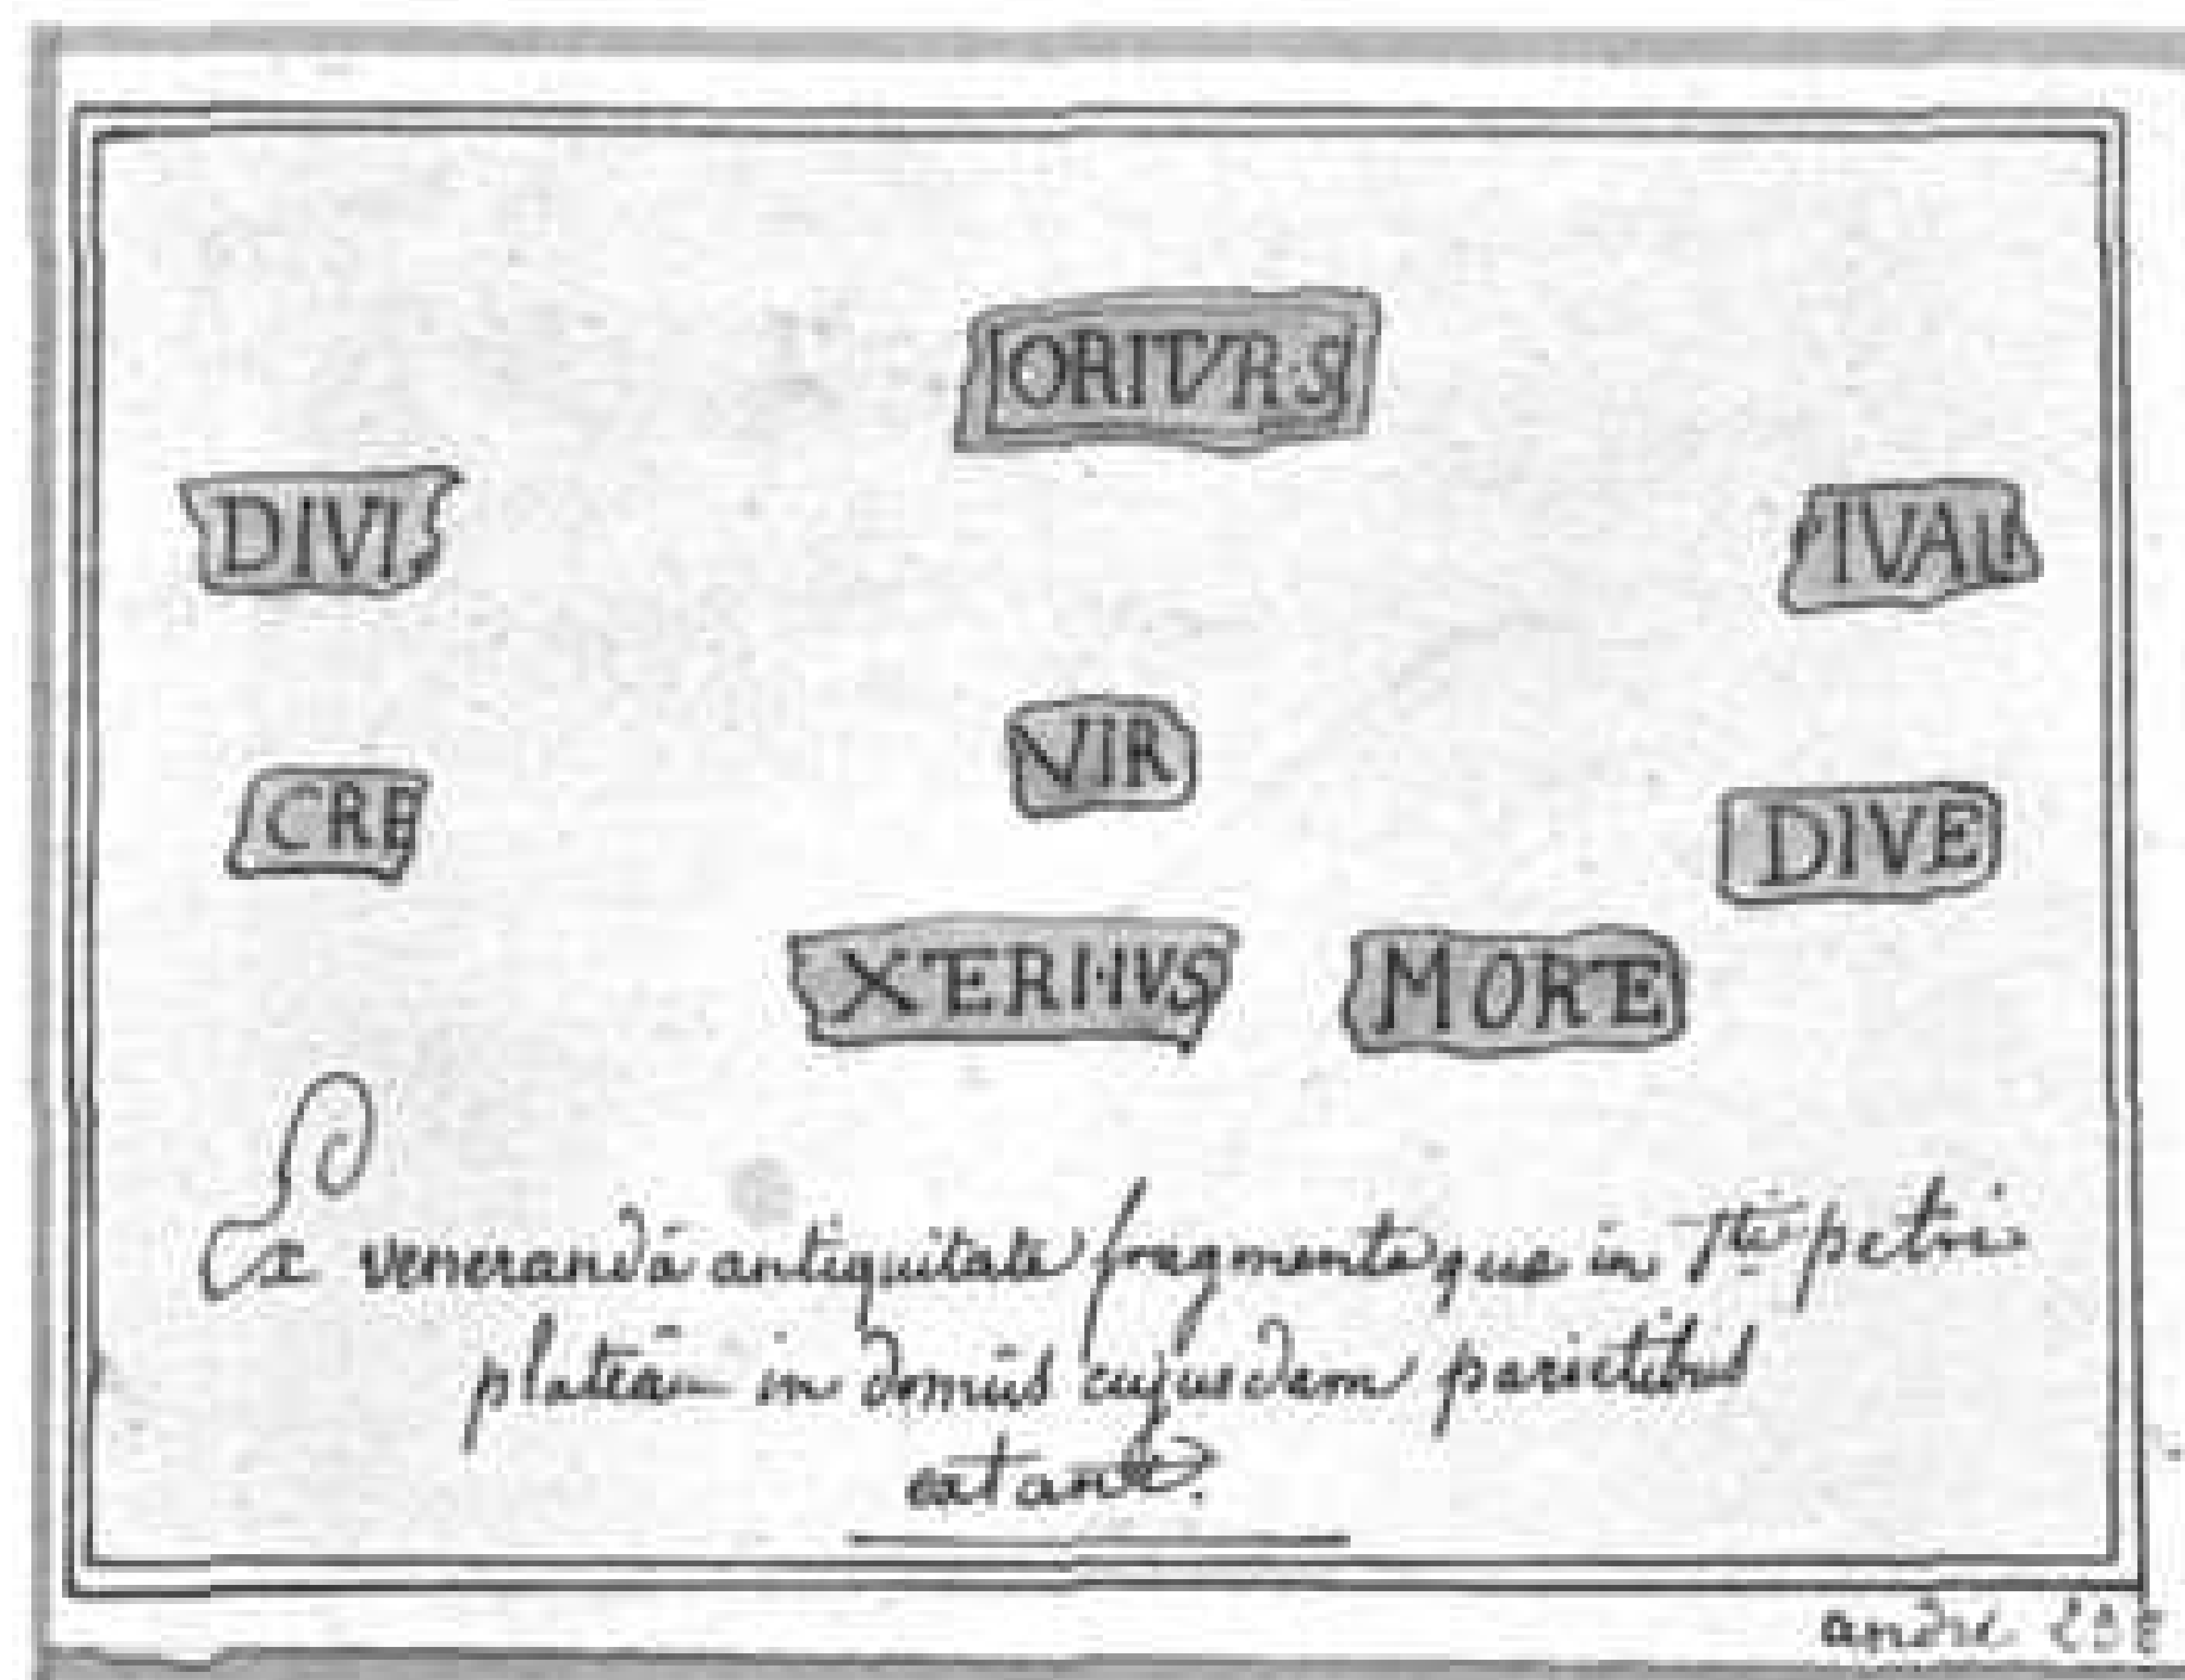 ORITVR·S
DIVI
IVAL
VIR
CRE
DIVE
XTERHVS
MORE
Ex venerandâ antiquitate fragmenta quæ in Sti petri
plateâ in domûs cujusdam parietibus
extant.
andré